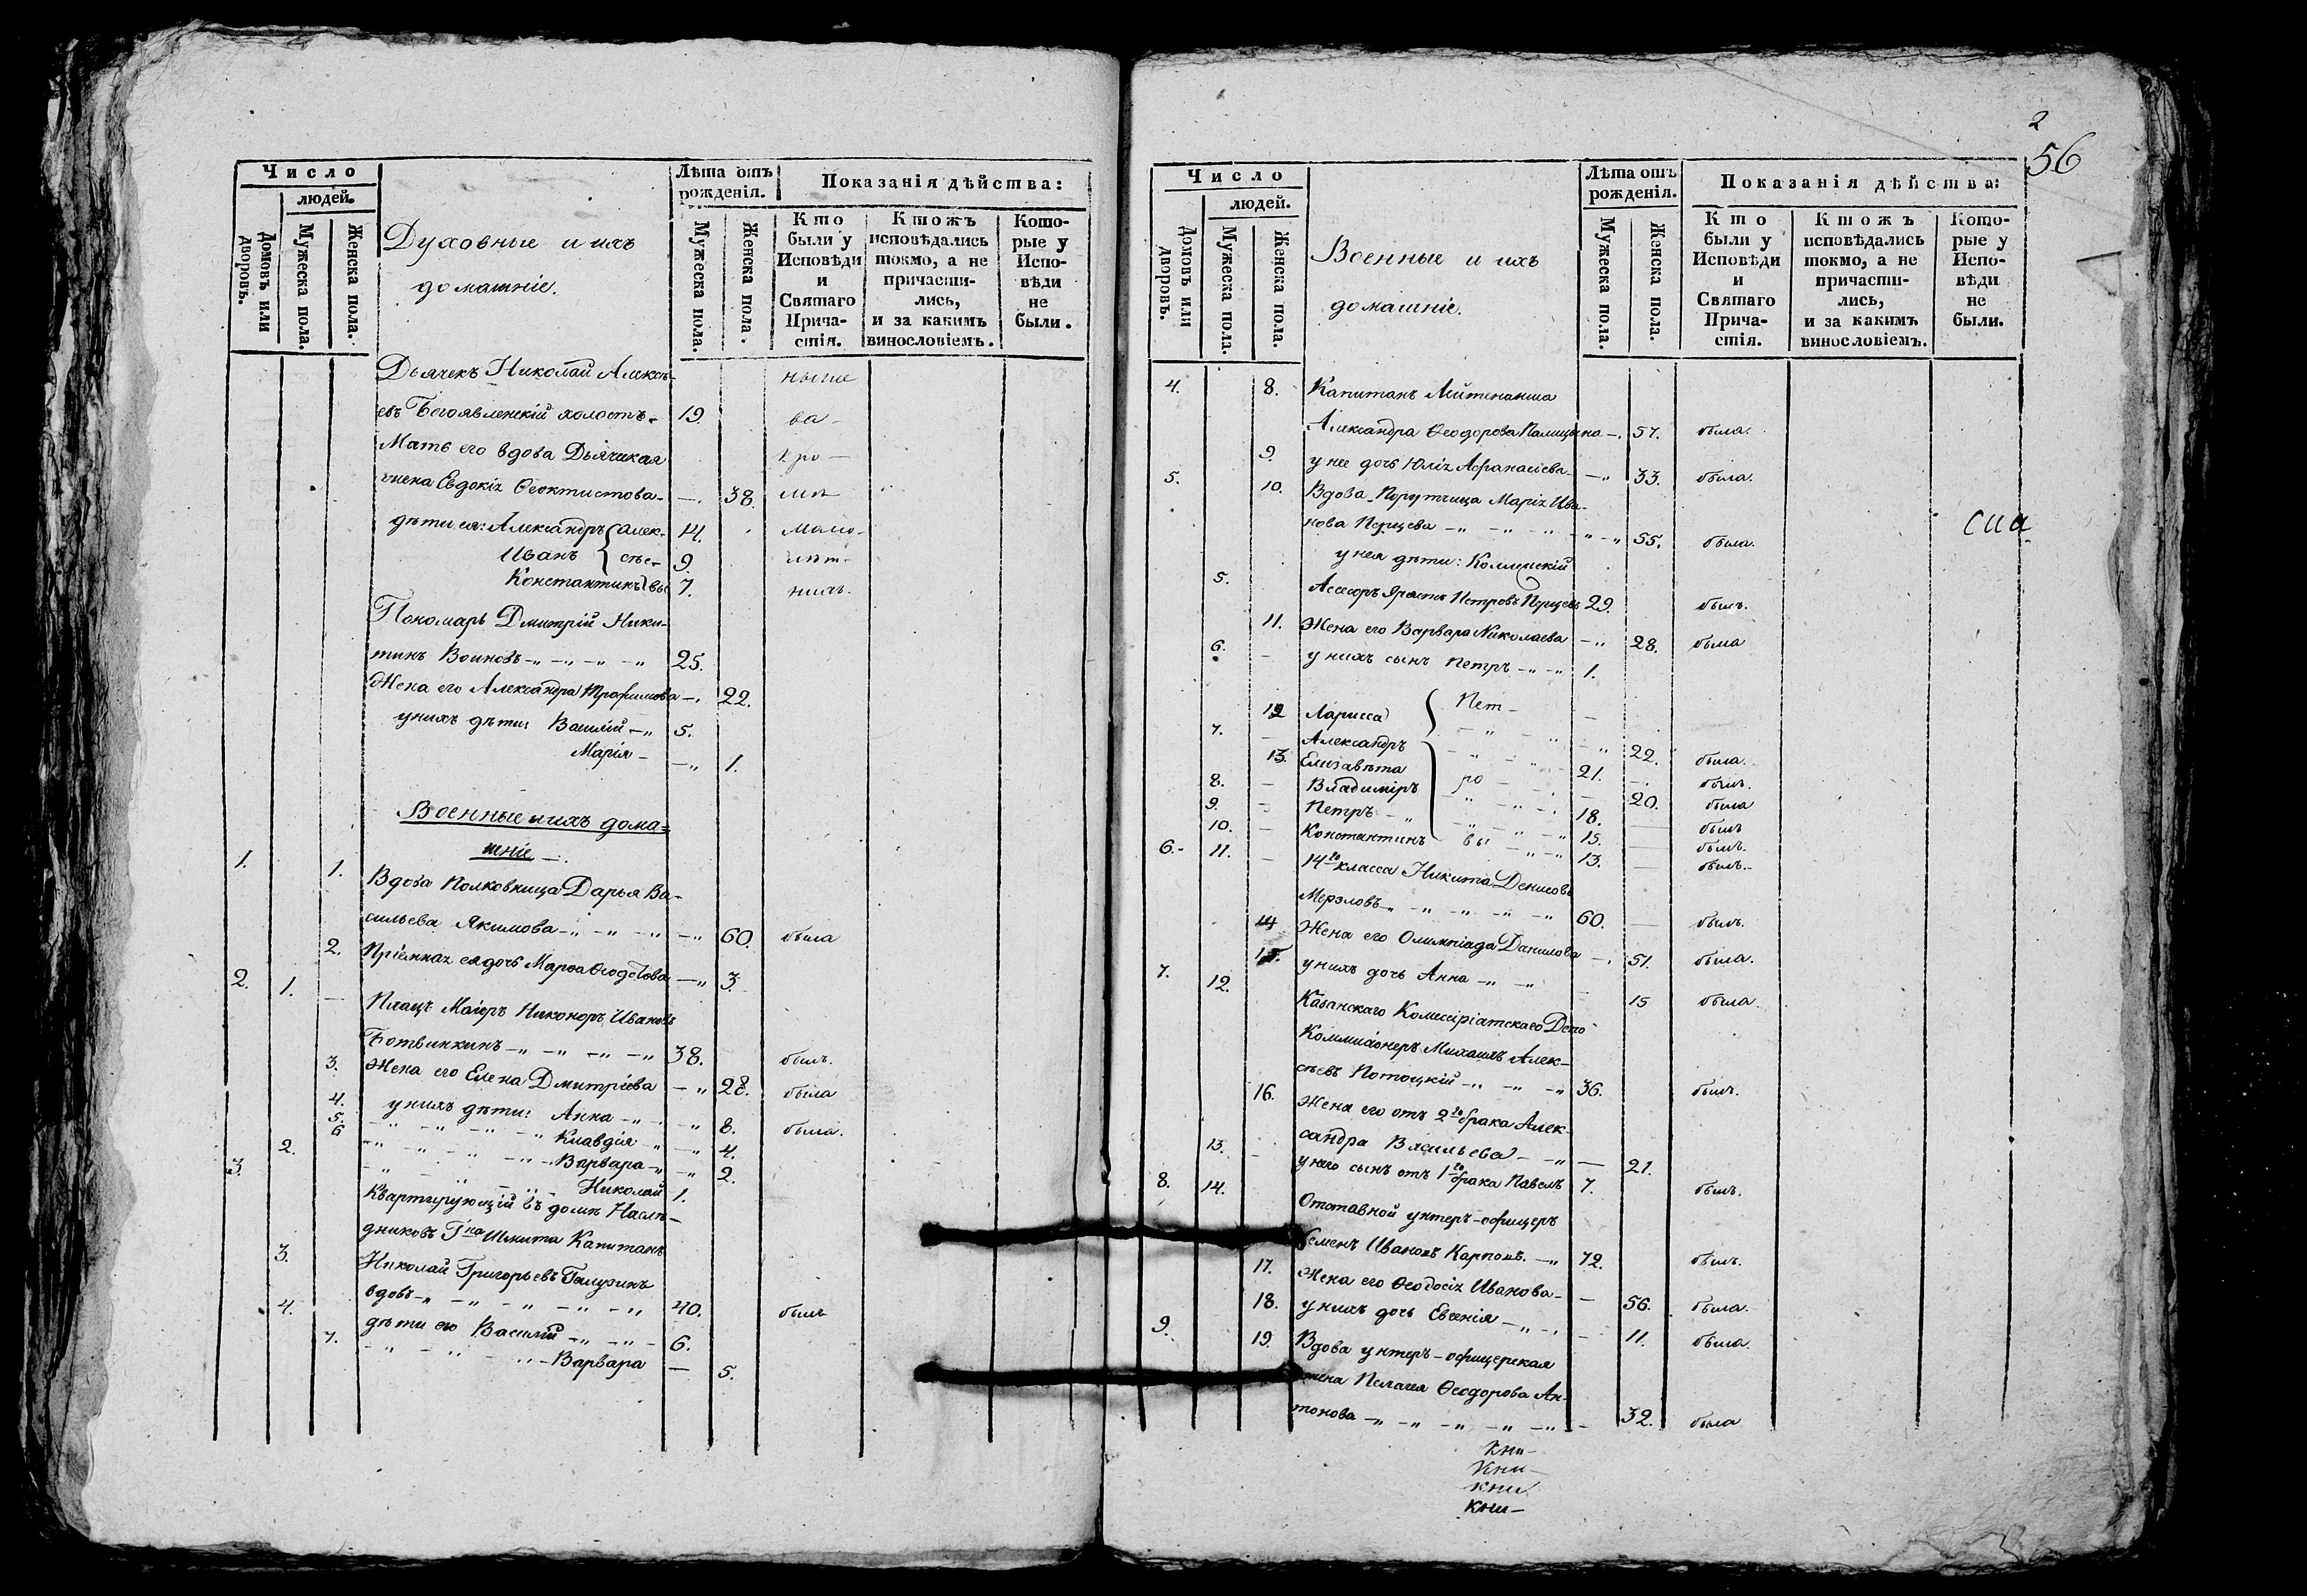 Число
людей.
Домовъ или дворовъ.
Мужеска пола.
Женска пола.
Духовные и ихъ
домашніе.
Лѣта отъ
рожденія.
Мужеска пола.
Женска пола.
Показанія дѣйства:
Кто
были у
Исповѣди
и
Святаго
Прича-
стія.
Ктожъ
исповѣдались
токмо, а не
причасти-
лись,
и за какимъ
винословіемъ.
Кото-
рые у
Испо-
вѣди
не
были.
Дьячекъ Николай Алексѣ-
евъ Богоявленскій холостъ- 19.
Мать его вдова Дьяческая
жена Евдокія Ѳеоктистова- 38.
дѣти ея: Александръ Алек- 14. мало-
Иванъ сѣе- 9. лѣт-
Константинъ вы 7. нихъ.
Пономарь Дмитрій Ники-
тинъ Воиновъ 25.
Жена его Александра Трофимова 22.
у нихъ дѣти: Василій 5.
Марія 1.
Военные и ихъ дома=
шніе.
1. 1. Вдова Полковница Дарья Ва-
сильева Якимова 60. была
2. Пріемная ея дочь Марѳа Ѳеодотова 3.
2. 1. Плацъ Маіоръ Никоноръ Ивановъ
Ботвинкинъ 38. былъ.
3. Жена его Елена Дмитріева 28. была
4. у нихъ дѣти: Анна 8. была.
5. Клавдія 4.
6 Варвара 2.
2. Николай 1.
3. Квартирующій въ домѣ Наслѣ-
дниковъ Гна Шмита Капитанъ
3. Николай Григорьевъ Галузинъ
вдовъ 40. былъ
4. дѣти его Василій 6.
7. Варвара 5.
2
56
Число
людей.
Домовъ или дворовъ.
Мужеска пола.
Женска пола.
Военные и ихъ
домашніе.
Лѣта отъ
рожденія.
Мужеска пола.
Женска пола.
Показанія дѣйства:
Кто
были у
Исповѣди
и
Святаго
Прича-
стія.
Ктожъ
исповѣдались
токмо, а не
причасти-
лись,
и за какимъ
винословіемъ.
Кото-
рые у
Испо-
вѣди
не
были.
4. 8. Капитанъ Лейтенанша
Александра Ѳеодорова Палицына 57. была.
9. у нее дочь Юлія Аѳанасіева 33. была.
5. 10. Вдова Порутчица Марія Ива-
нова Перцева 55. была.
у нея дѣти: Коллежскій
5. Асессоръ Петровъ Перцевъ 29. былъ.
11. Жена его Варвара Николаева 28. была
6. у нихъ сынъ Петръ 1.
12 Ларисса Пет- 22. была.
7. Александръ 21. былъ.
13. Елизавета ро 20. была
8. Владиміръ 18. былъ
9. Петръ 15. былъ.
10. Константинъ вы 13. былъ.
6. 11. 14го класса Никита Денисовъ
Мерзловъ 60. былъ.
14 Жена его Олимпіада Данилова 51. была.
15. у нихъ дочь Анна 15 была.
7. 12. Казанскаго Комиссіріатскаго Депо
Коммиіонеръ Михаилъ Алек-
сѣевъ Потоцкій 36. былъ.
16. Жена его отъ 2го брака Алек-
сандра Васильева 21.
13. у него сынъ отъ 1го брака Павелъ 7. былъ.
8. 14. Отставной унтеръ-офицеръ
Семенъ Ивановъ Карповъ. 72. былъ.
17. Жена его Ѳеодосія Иванова 56. была.
18. у нихъ дочь Евгенія 11. была.
9. 19. Вдова унтеръ-офицерская
жена Пелагея Ѳеодорова Ан-
тонова 32. была
кни-
кни-
кни
кни-